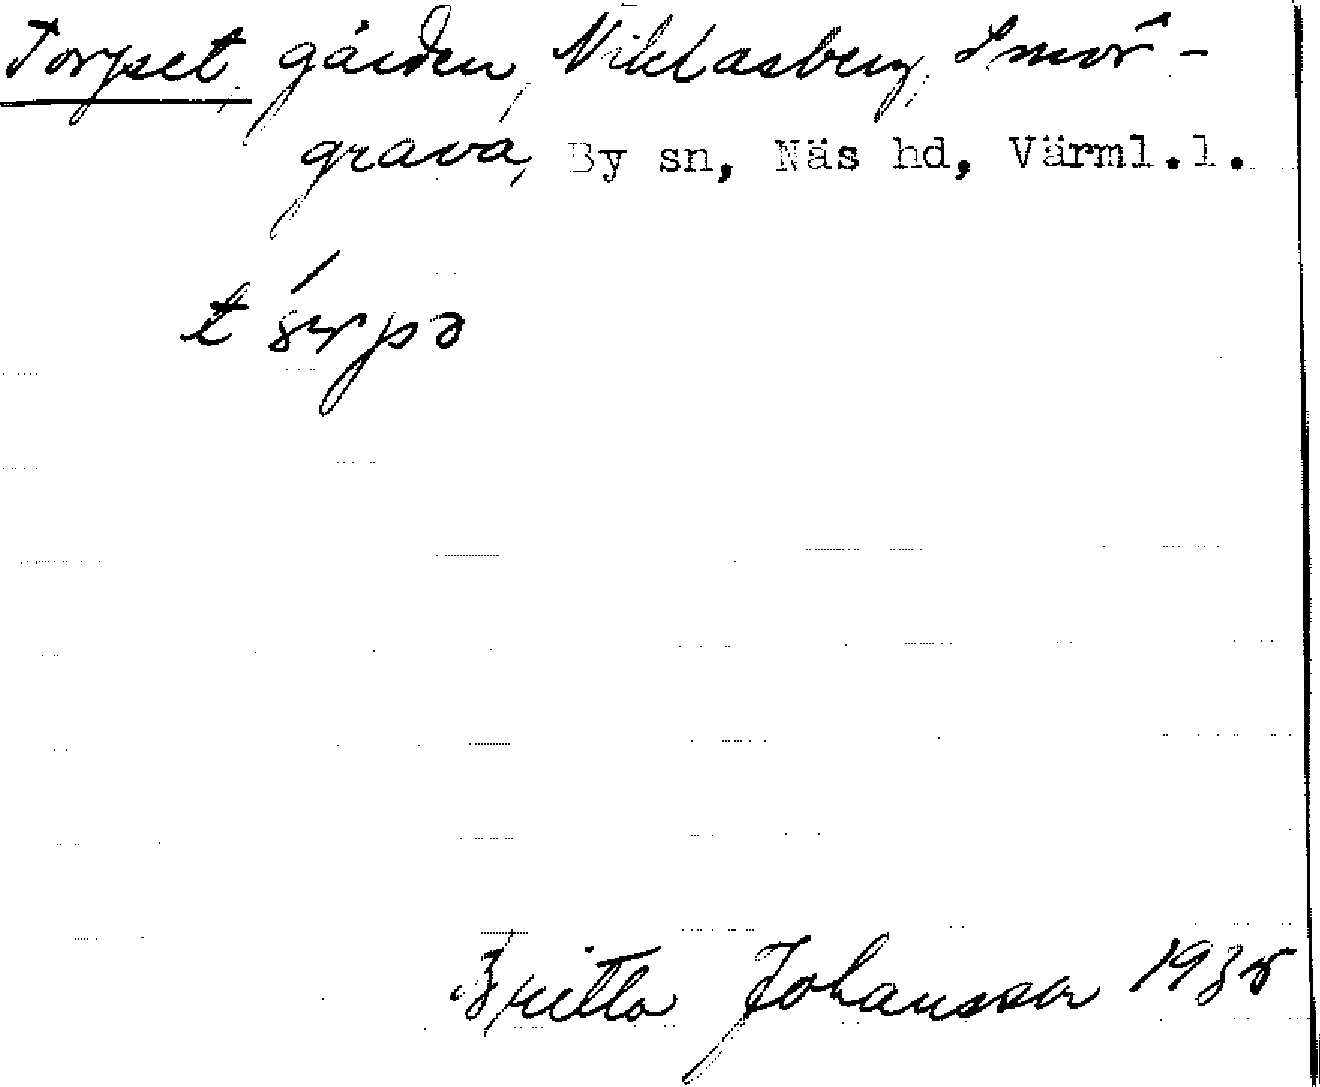 Torpet, gården, Niklasberg, Smör-
grava, By sn, Näs hd, Värml.l.
Britta Johansson 1935